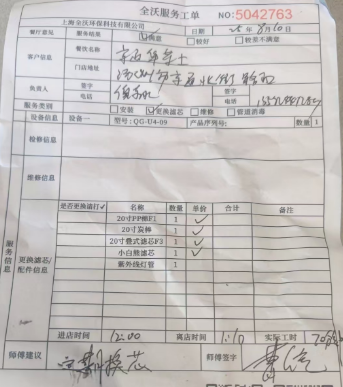 全沃服务工单 NO:5042763
上海全沃环保科技有限公司 日期
餐厅意见 服务结果 满意 较好 较差不满意
客户信息 餐饮名称
门店地址
负责人 签字 签字
电话 电话
服务类别 安装 更换滤芯 维修 管道消毒
设备信息 设备一 型号:QG-U4-09 产品序列号: 数量 1
检修信息
维修信息
服务信息
更换滤芯/配件信息
是否更换请打✓ 名称 数量 单价 合计 备注
20寸PP棉F1 1 ✓
20寸炭棒 1 ✓
20寸叠式滤芯F3 1 ✓
小白熊滤芯 1 ✓
紫外线灯管 1
进店时间 12:00 离店时间 1:10 实际工时
师傅建议 定期换芯 师傅签字